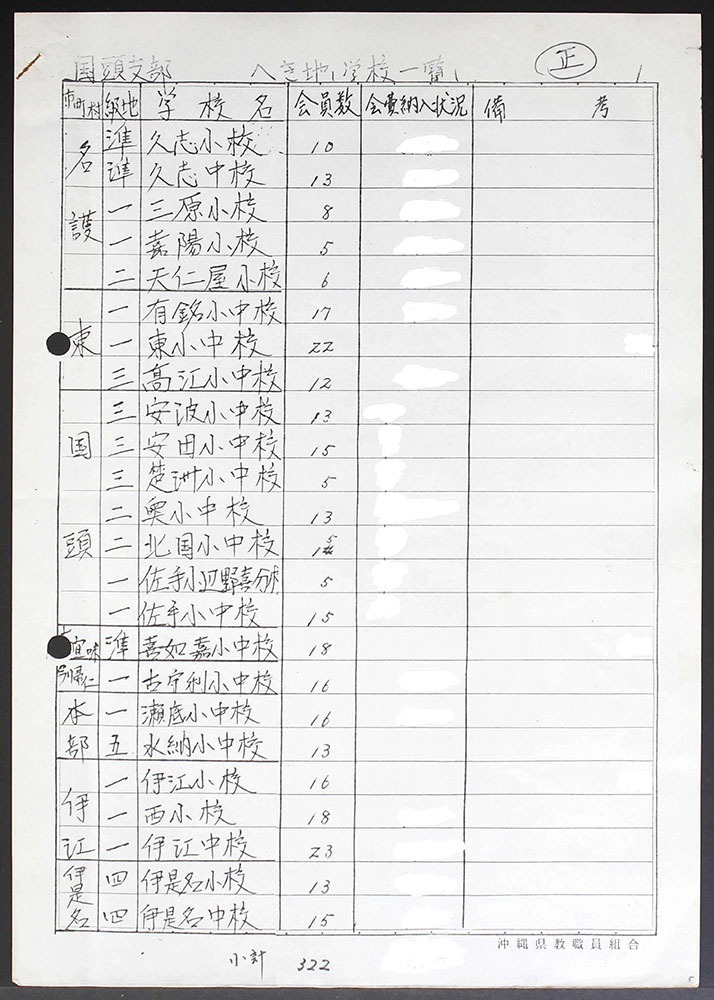 国頭支部 へき地学校一覧 正 1
市町村 級地 学校名 会員数 会費納入状況 備考
名護 準 久志小校 10
準 久志中校 13
一 三原小校 8
一 嘉陽小校 5
二 天仁屋小校 6
東 一 有銘小中校 17
一 東小中校 22
三 高江小中校 12
国頭 三 安波小中校 13
三 安田小中校 15
三 楚洲小中校 5
二 奥小中校 13
二 北国小中校
一 佐手小辺野喜分校 5
一 佐手小中校 15
宜味 準 喜如嘉小中校 18
今帰仁 一 古宇利小中校 16
本部 一 瀬底小中校 16
五 水納小中校 13
伊江 一 伊江小校 16
一 西小校 18
一 伊江中校 23
伊是名 四 伊是名小校 13
四 伊是名中校 15
沖縄県教職員組合
小計 322